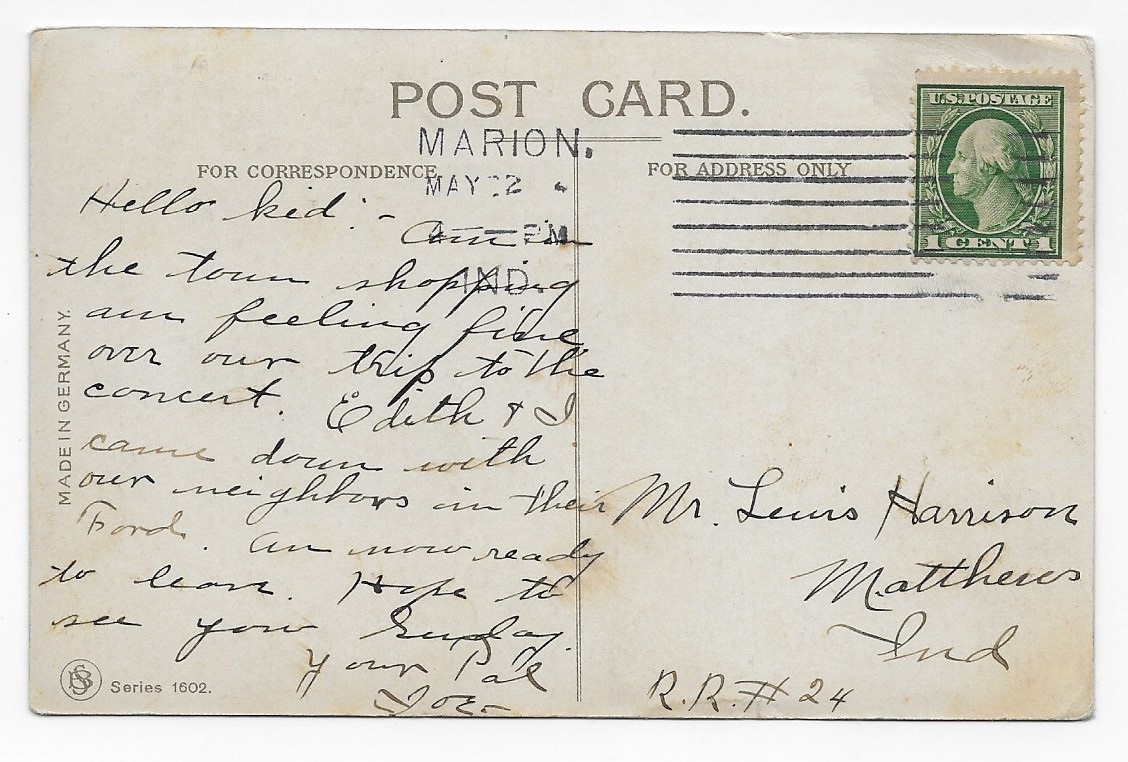 POST CARD.
MARION,
MAY 2
PM
IND.
FOR CORRESPONDENCE
FOR ADDRESS ONLY
U.S. POSTAGE
1 CENT 1
Hello kid - Am in
the town shopping
am feeling fine
over our trip to the
concert. Edith & I
came down with
our neighbors in their
Ford. Am now ready
to leave. Hope to
see you Sunday
Your Pal
Mr. Lewis Harrison
Matthews
Ind
R.R. # 24
MADE IN GERMANY.
Series 1602.